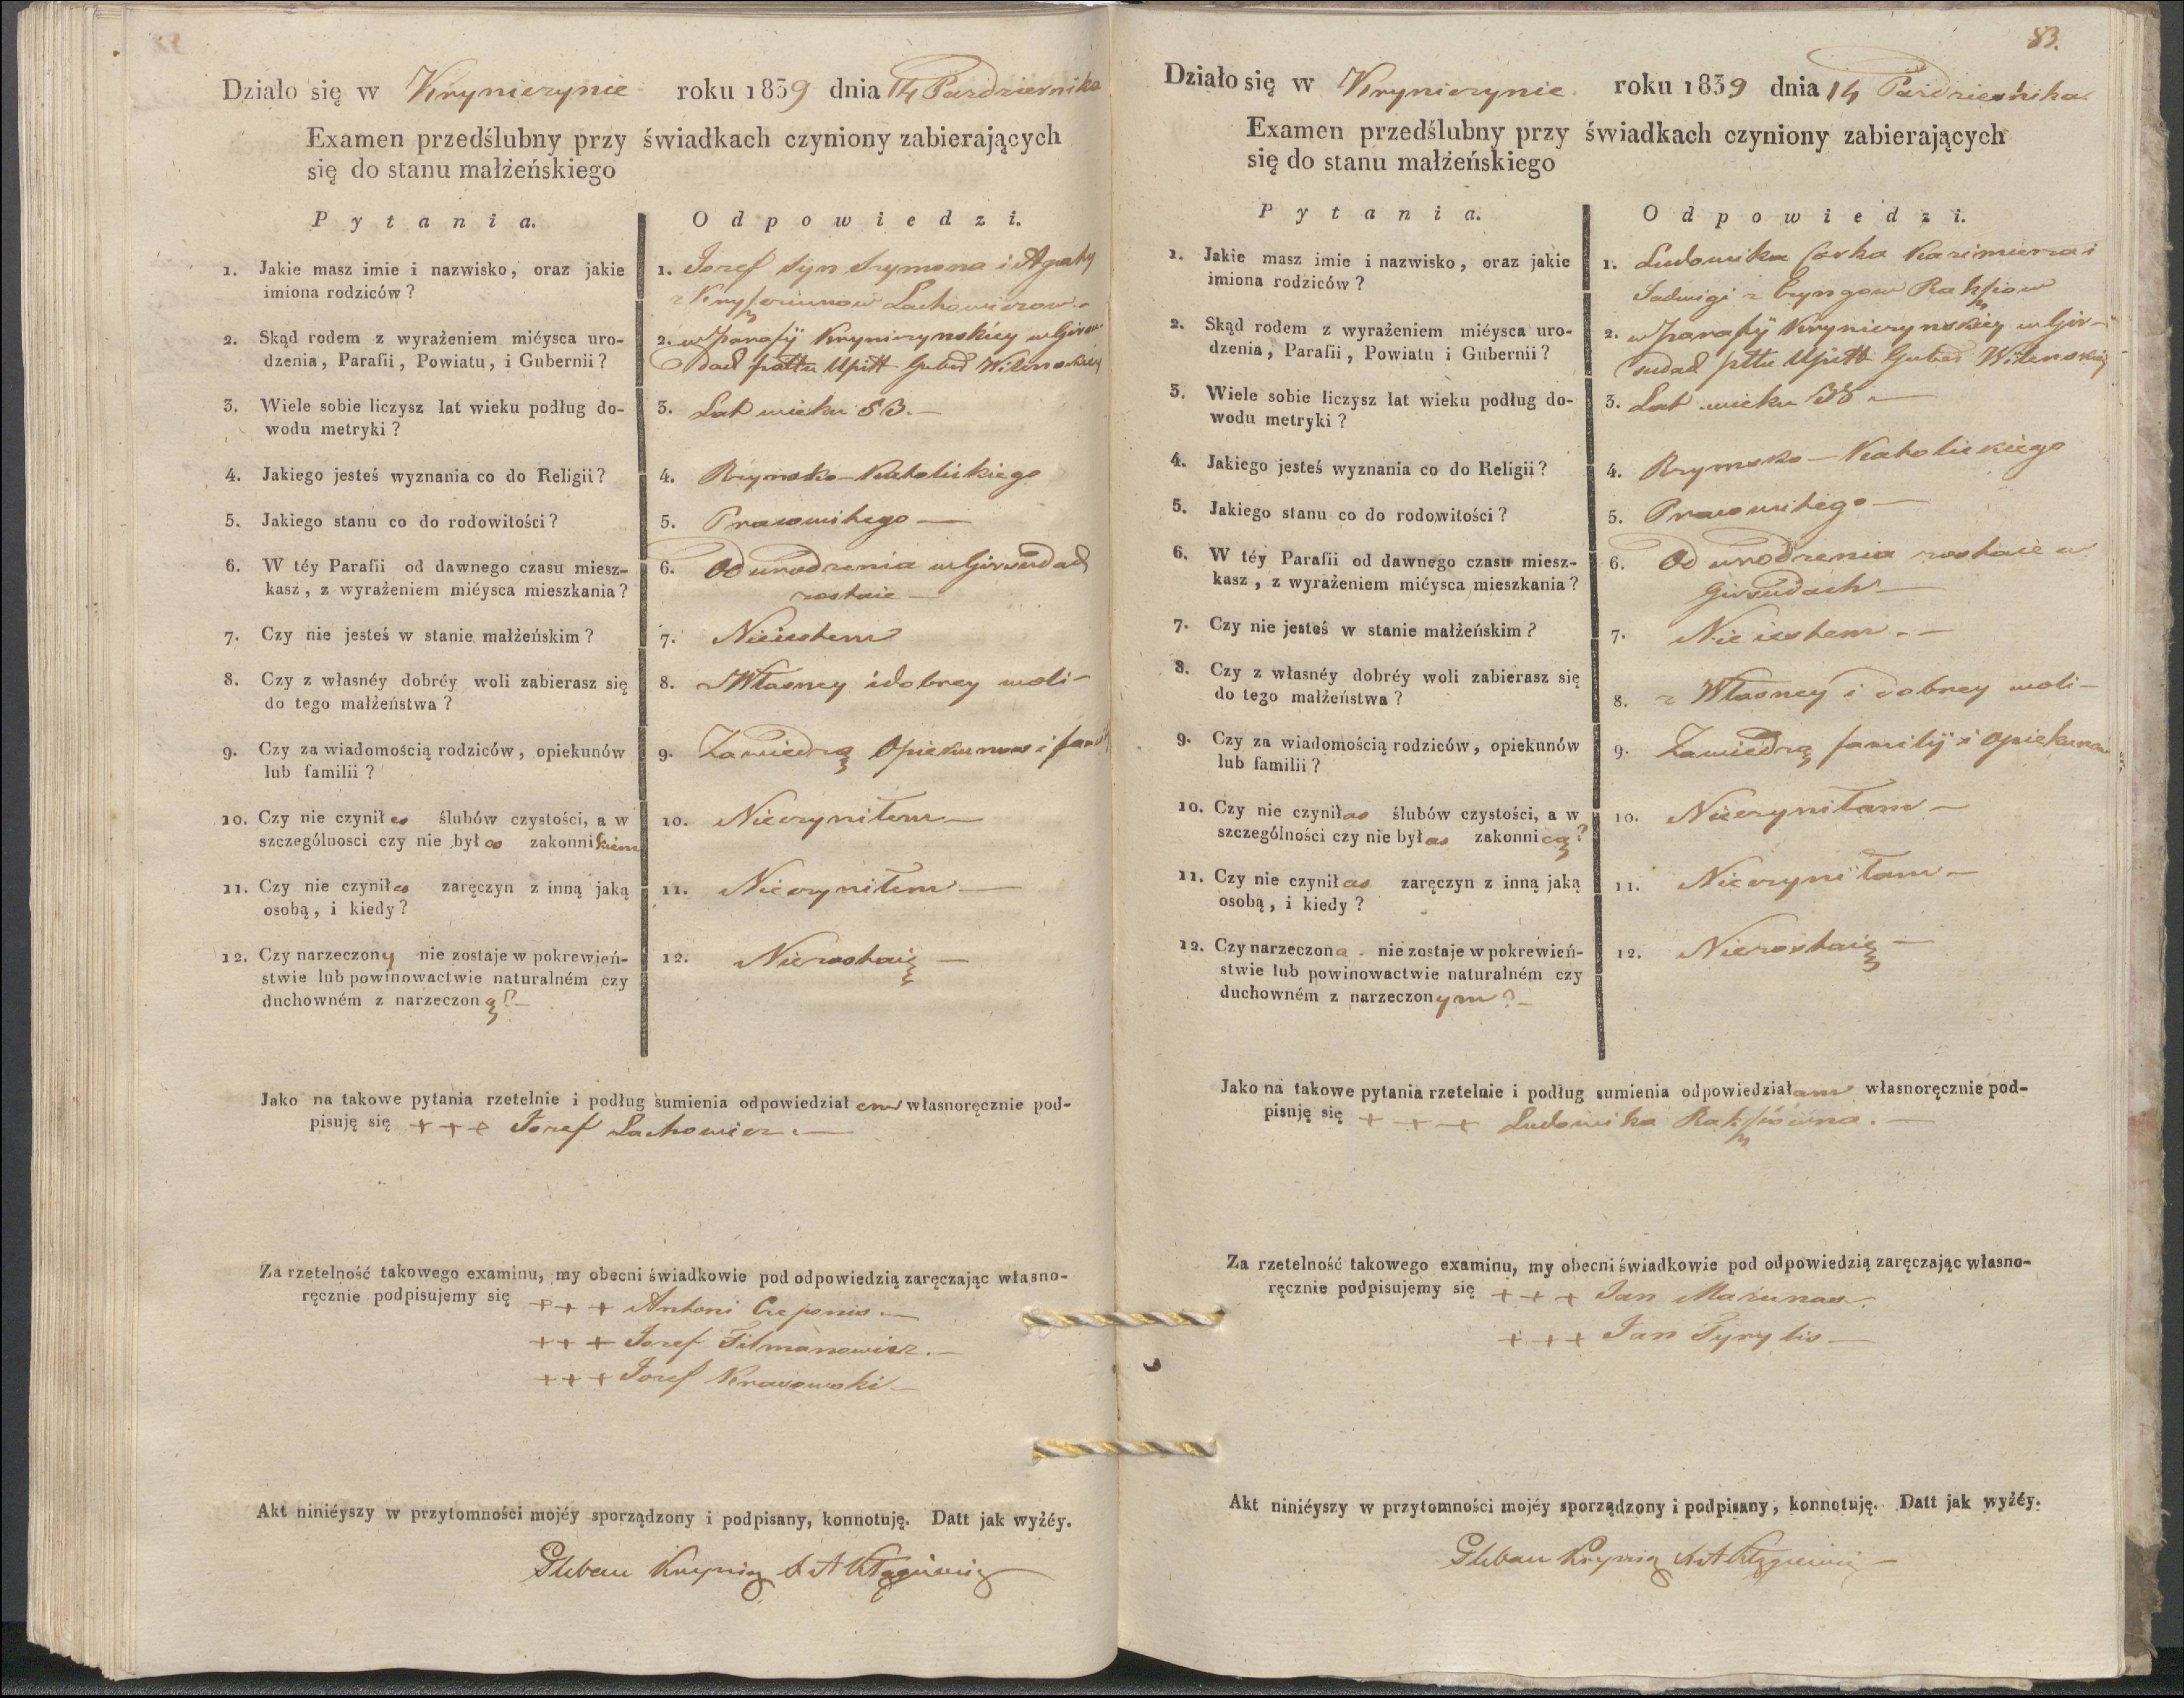 Działo się w Krynierzynie roku 1839 dnia 14 Pazdziernika
Examen przedślubny przy świadkach czyniony zabierających
się do stanu małżeńskiego
Pytania.
Odpowiedzi.
1. Jakie masz imie i nazwisko, oraz jakie
imiona rodziców?
1. Jozef syn Szymona i Agaty
z Lachowiczow
2. Skąd rodem z wyrażeniem miéysca uro-
dzenia, Parafii, Powiatu, i Gubernii?
2. w parafÿ
Upitt Guber Wilenskiey
3. Wiele sobie liczysz lat wieku podług do-
wodu metryki?
3. Lat wieku 53.
4. Jakiego jesteś wyznania co do Religii?
4. Rzymsko-Katolickiego
5. Jakiego stanu co do rodowitości?
5. Pracowitego
6. W téy Parafii od dawnego czasu miesz-
kasz, z wyrażeniem miéysca mieszkania?
6. Od urodzenia w
zostaie
7. Czy nie jesteś w stanie małżeńskim?
7. Nieiestem
8. Czy z własnéy dobréy woli zabierasz się
do tego małżeństwa?
8. z Własney i dobrey woli
9. Czy za wiadomością rodziców, opiekunów
lub familii?
9. Zawiedzą Opiekunow i
10. Czy nie czyniłes ślubów czystości, a w
szczególnosci czy nie byłes zakonnikiem
10. Nieczyniłem
11. Czy nie czyniłes zaręczyn z inną jaką
osobą, i kiedy?
11. Nieczyniłem
12. Czy narzeczony nie zostaje w pokrewień-
stwie lub powinowactwie naturalném czy
duchowném z narzeczoną?
12. Niezostaię
Jako na takowe pytania rzetelnie i podług sumienia odpowiedziałem własnoręcznie pod-
pisuję się +++ Jozef Lachowicz.
Za rzetelność takowego examinu, my obecni świadkowie pod odpowiedzią zaręczając własno-
ręcznie podpisujemy się +++ Antoni Czeponis.
+++ Jozef Filmanowicz.
+++ Jozef Krasowski
Akt niniéyszy w przytomności mojéy sporządzony i podpisany, konnotuję. Datt jak wyżéy.
Pleban
83.
Działo się w Krynierzynie roku 1839 dnia 14 Pazdziernika
Examen przedślubny przy świadkach czyniony zabierających
się do stanu małżeńskiego
Pytania.
Odpowiedzi.
1. Jakie masz imie i nazwisko, oraz jakie
imiona rodziców?
1. Ludowika Corka Kazimierza i
Jadwigi z
2. Skąd rodem z wyrażeniem miéysca uro-
dzenia, Parafii, Powiatu i Gubernii?
2. w parafÿ
Upitt Guber Wilenskiey
3. Wiele sobie liczysz lat wieku podług do-
wodu metryki?
3. Lat wieku 38
4. Jakiego jesteś wyznania co do Religii?
4. Rzymsko-Katolickiego
5. Jakiego stanu co do rodowitości?
5. Pracowitego
6. W téy Parafii od dawnego czasu miesz-
kasz, z wyrażeniem miéysca mieszkania?
6. Od urodzenia zostaie w
Girsudach
7. Czy nie jesteś w stanie małżeńskim?
7. Nie iestem.
8. Czy z własnéy dobréy woli zabierasz się
do tego małżeństwa?
8. z Własney i dobrey woli
9. Czy za wiadomością rodziców, opiekunów
lub familii?
9. Zawiedzą familÿ i opiekunow
10. Czy nie czyniłas ślubów czystości, a w
szczególności czy nie byłas zakonnicą?
10. Nieczyniłam
11. Czy nie czyniłas zaręczyn z inną jaką
osobą, i kiedy?
11. Nieczyniłam
12. Czy narzeczona nie zostaje w pokrewień-
stwie lub powinowactwie naturalném czy
duchowném z narzeczonym?
12. Niezostaię
Jako na takowe pytania rzetelnie i podług sumienia odpowiedziałam własnoręcznie pod-
pisuję się +++ Ludowika
Za rzetelność takowego examinu, my obecni świadkowie pod odpowiedzią zaręczając własno-
ręcznie podpisujemy się +++ Jan Mazunas.
+++ Jan
Akt niniéyszy w przytomności mojéy sporządzony i podpisany, konnotuję. Datt jak wyżéy.
Pleban